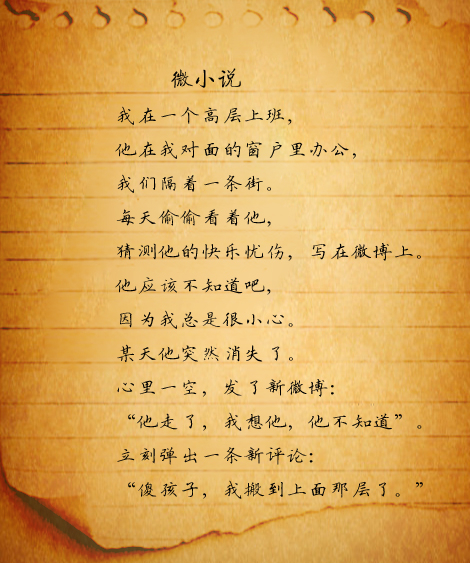 微小说
我在一个高层上班，
他在我对面的窗户里办公，
我们隔着一条街。
每天偷偷看着他，
猜测他的快乐忧伤，写在微博上。
他应该不知道吧，
因为我总是很小心。
某天他突然消失了。
心里一空，发了新微博：
“他走了，我想他，他不知道”。
立刻弹出一条新评论：
“傻孩子，我搬到上面那层了。”